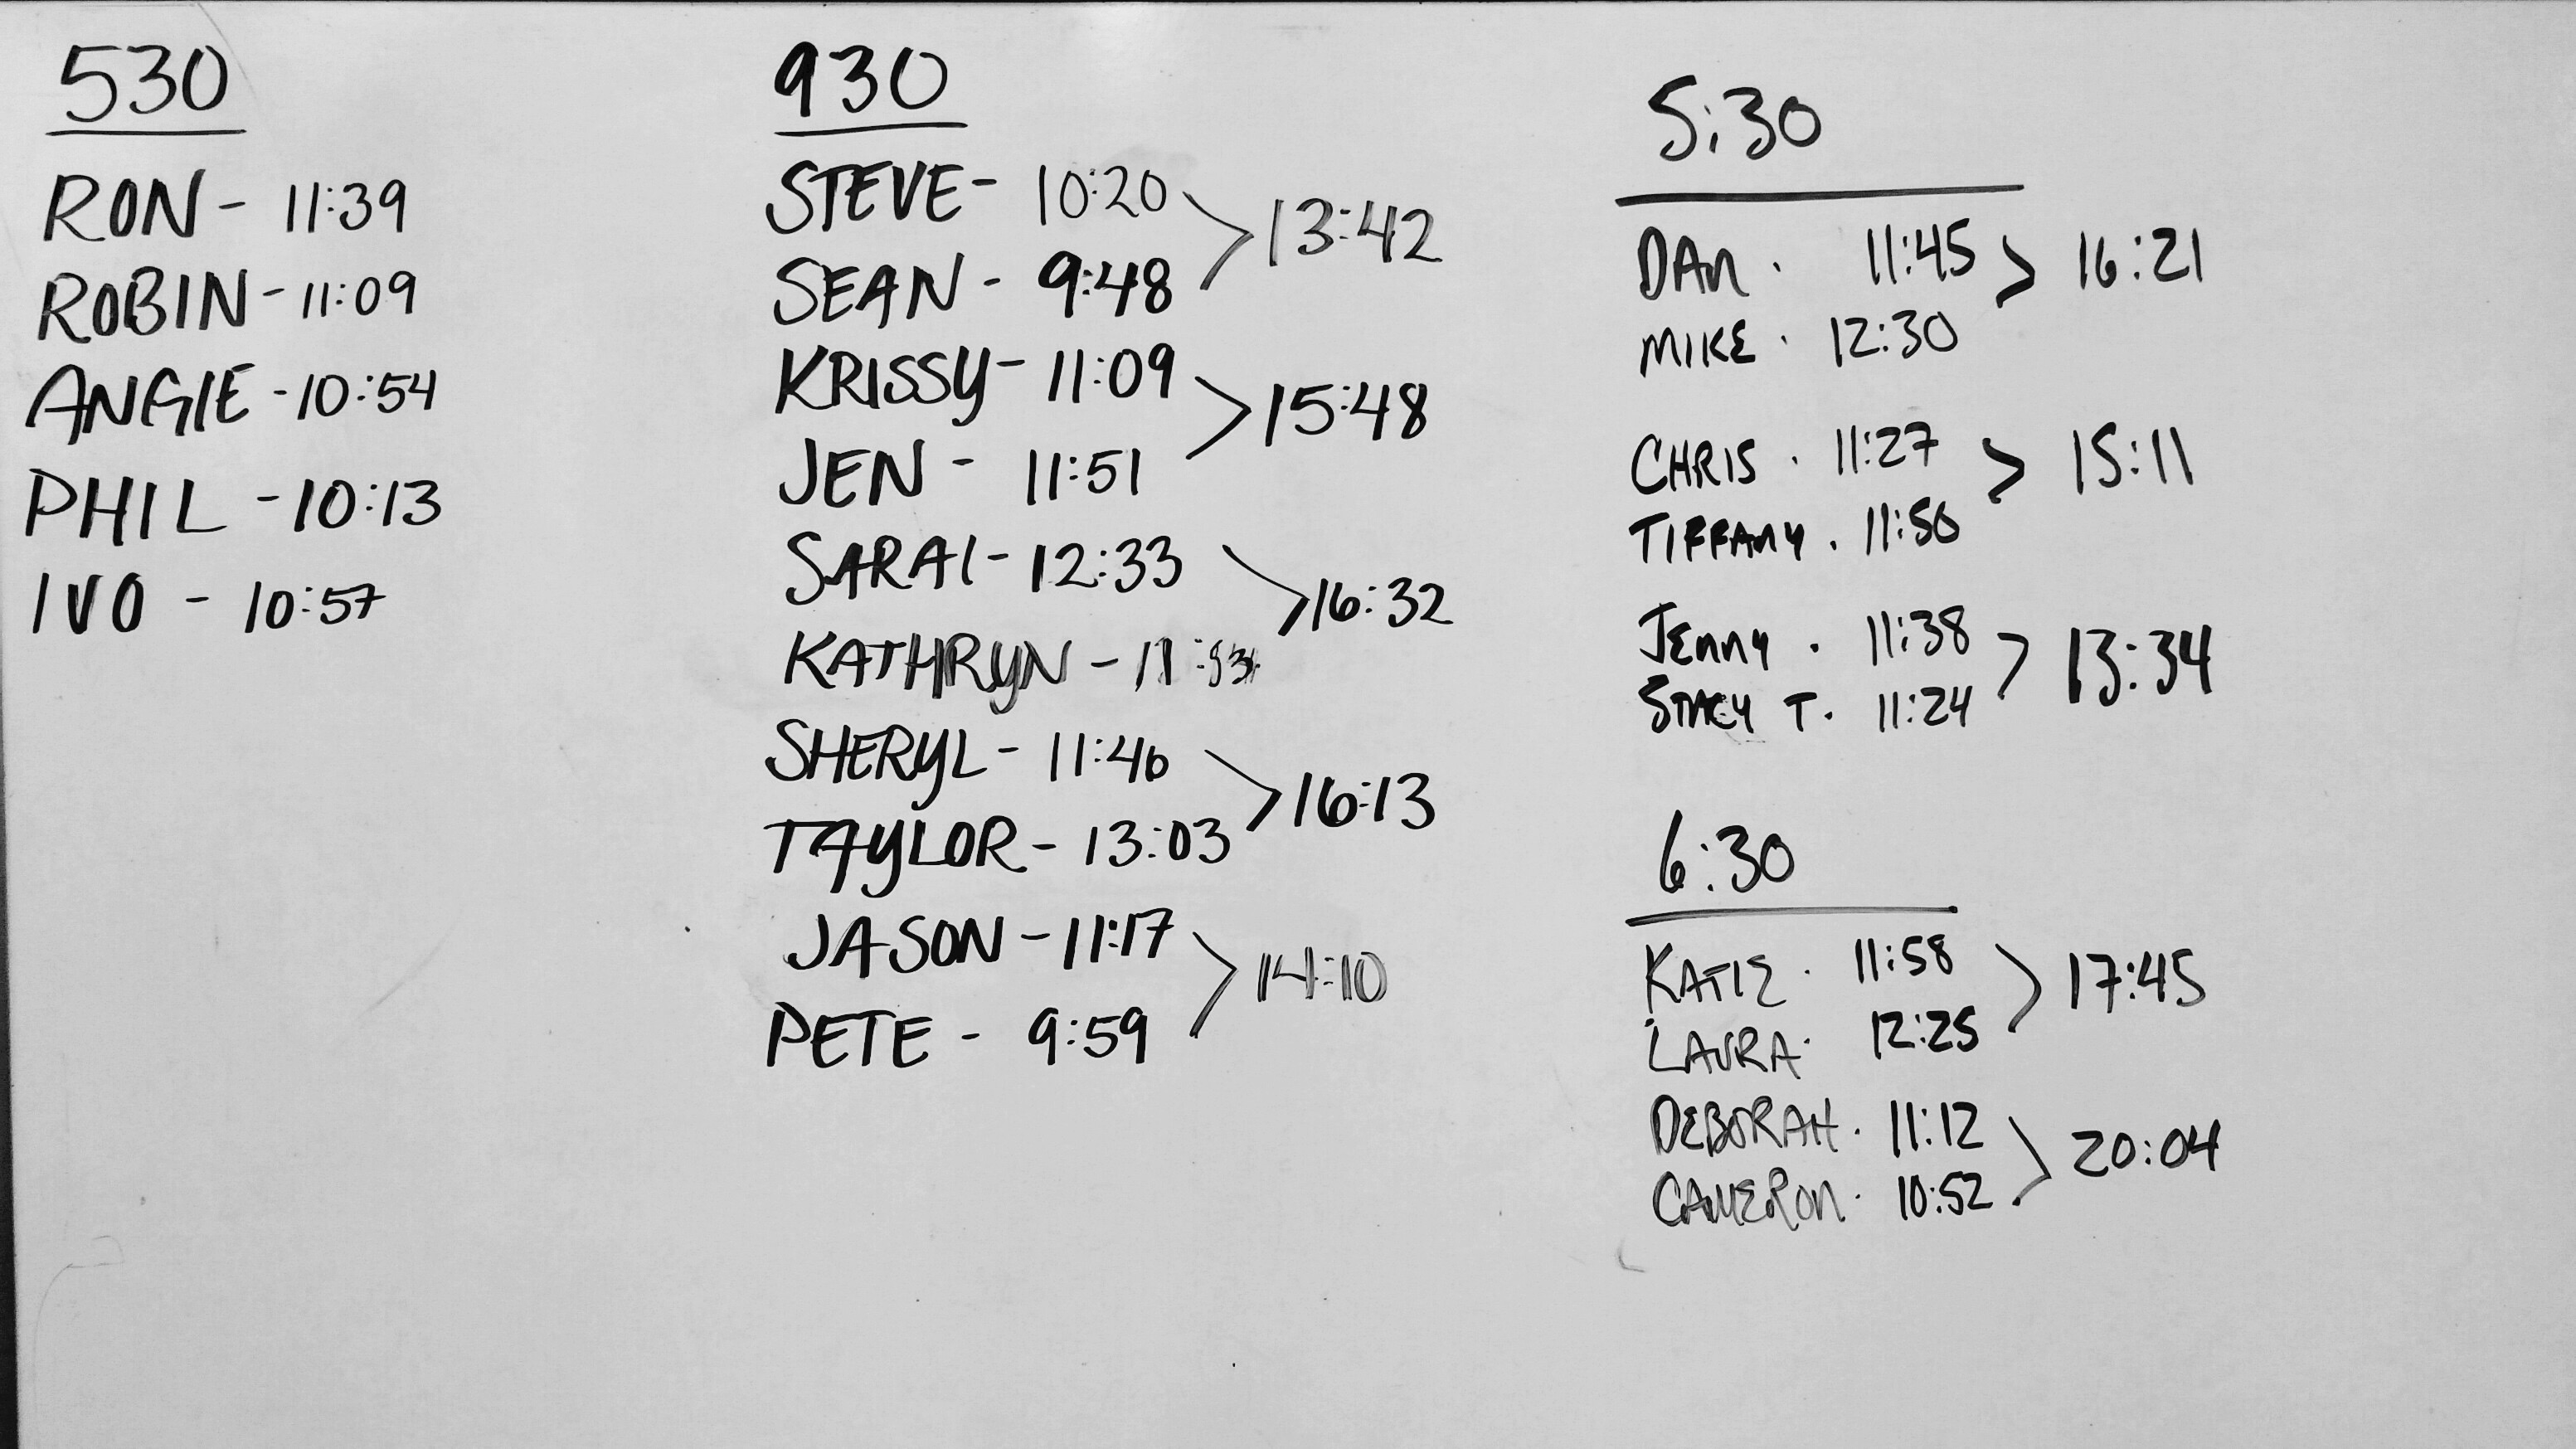 530
RON - 11:39
ROBIN - 11:09
ANGIE - 10:54
PHIL - 10:13
IVO - 10:57
930
STEVE - 10:20
SEAN - 9:48
> 13:42
KRISSY - 11:09
JEN - 11:51
> 15:48
SARAI - 12:33
KATHRYN -
> 16:32
SHERYL - 11:46
TAYLOR - 13:03
> 16:13
JASON - 11:17
PETE - 9:59
> 14:10
5:30
DAN . 11:45
MIKE . 12:30
> 16:21
CHRIS . 11:27
TIFFANY . 11:50
> 15:11
JENNY . 11:38
STACY T. 11:24
> 13:34
6:30
KATIE . 11:58
LAURA . 12:25
> 17:45
DEBORAH . 11:12
CAMERON . 10:52
> 20:04